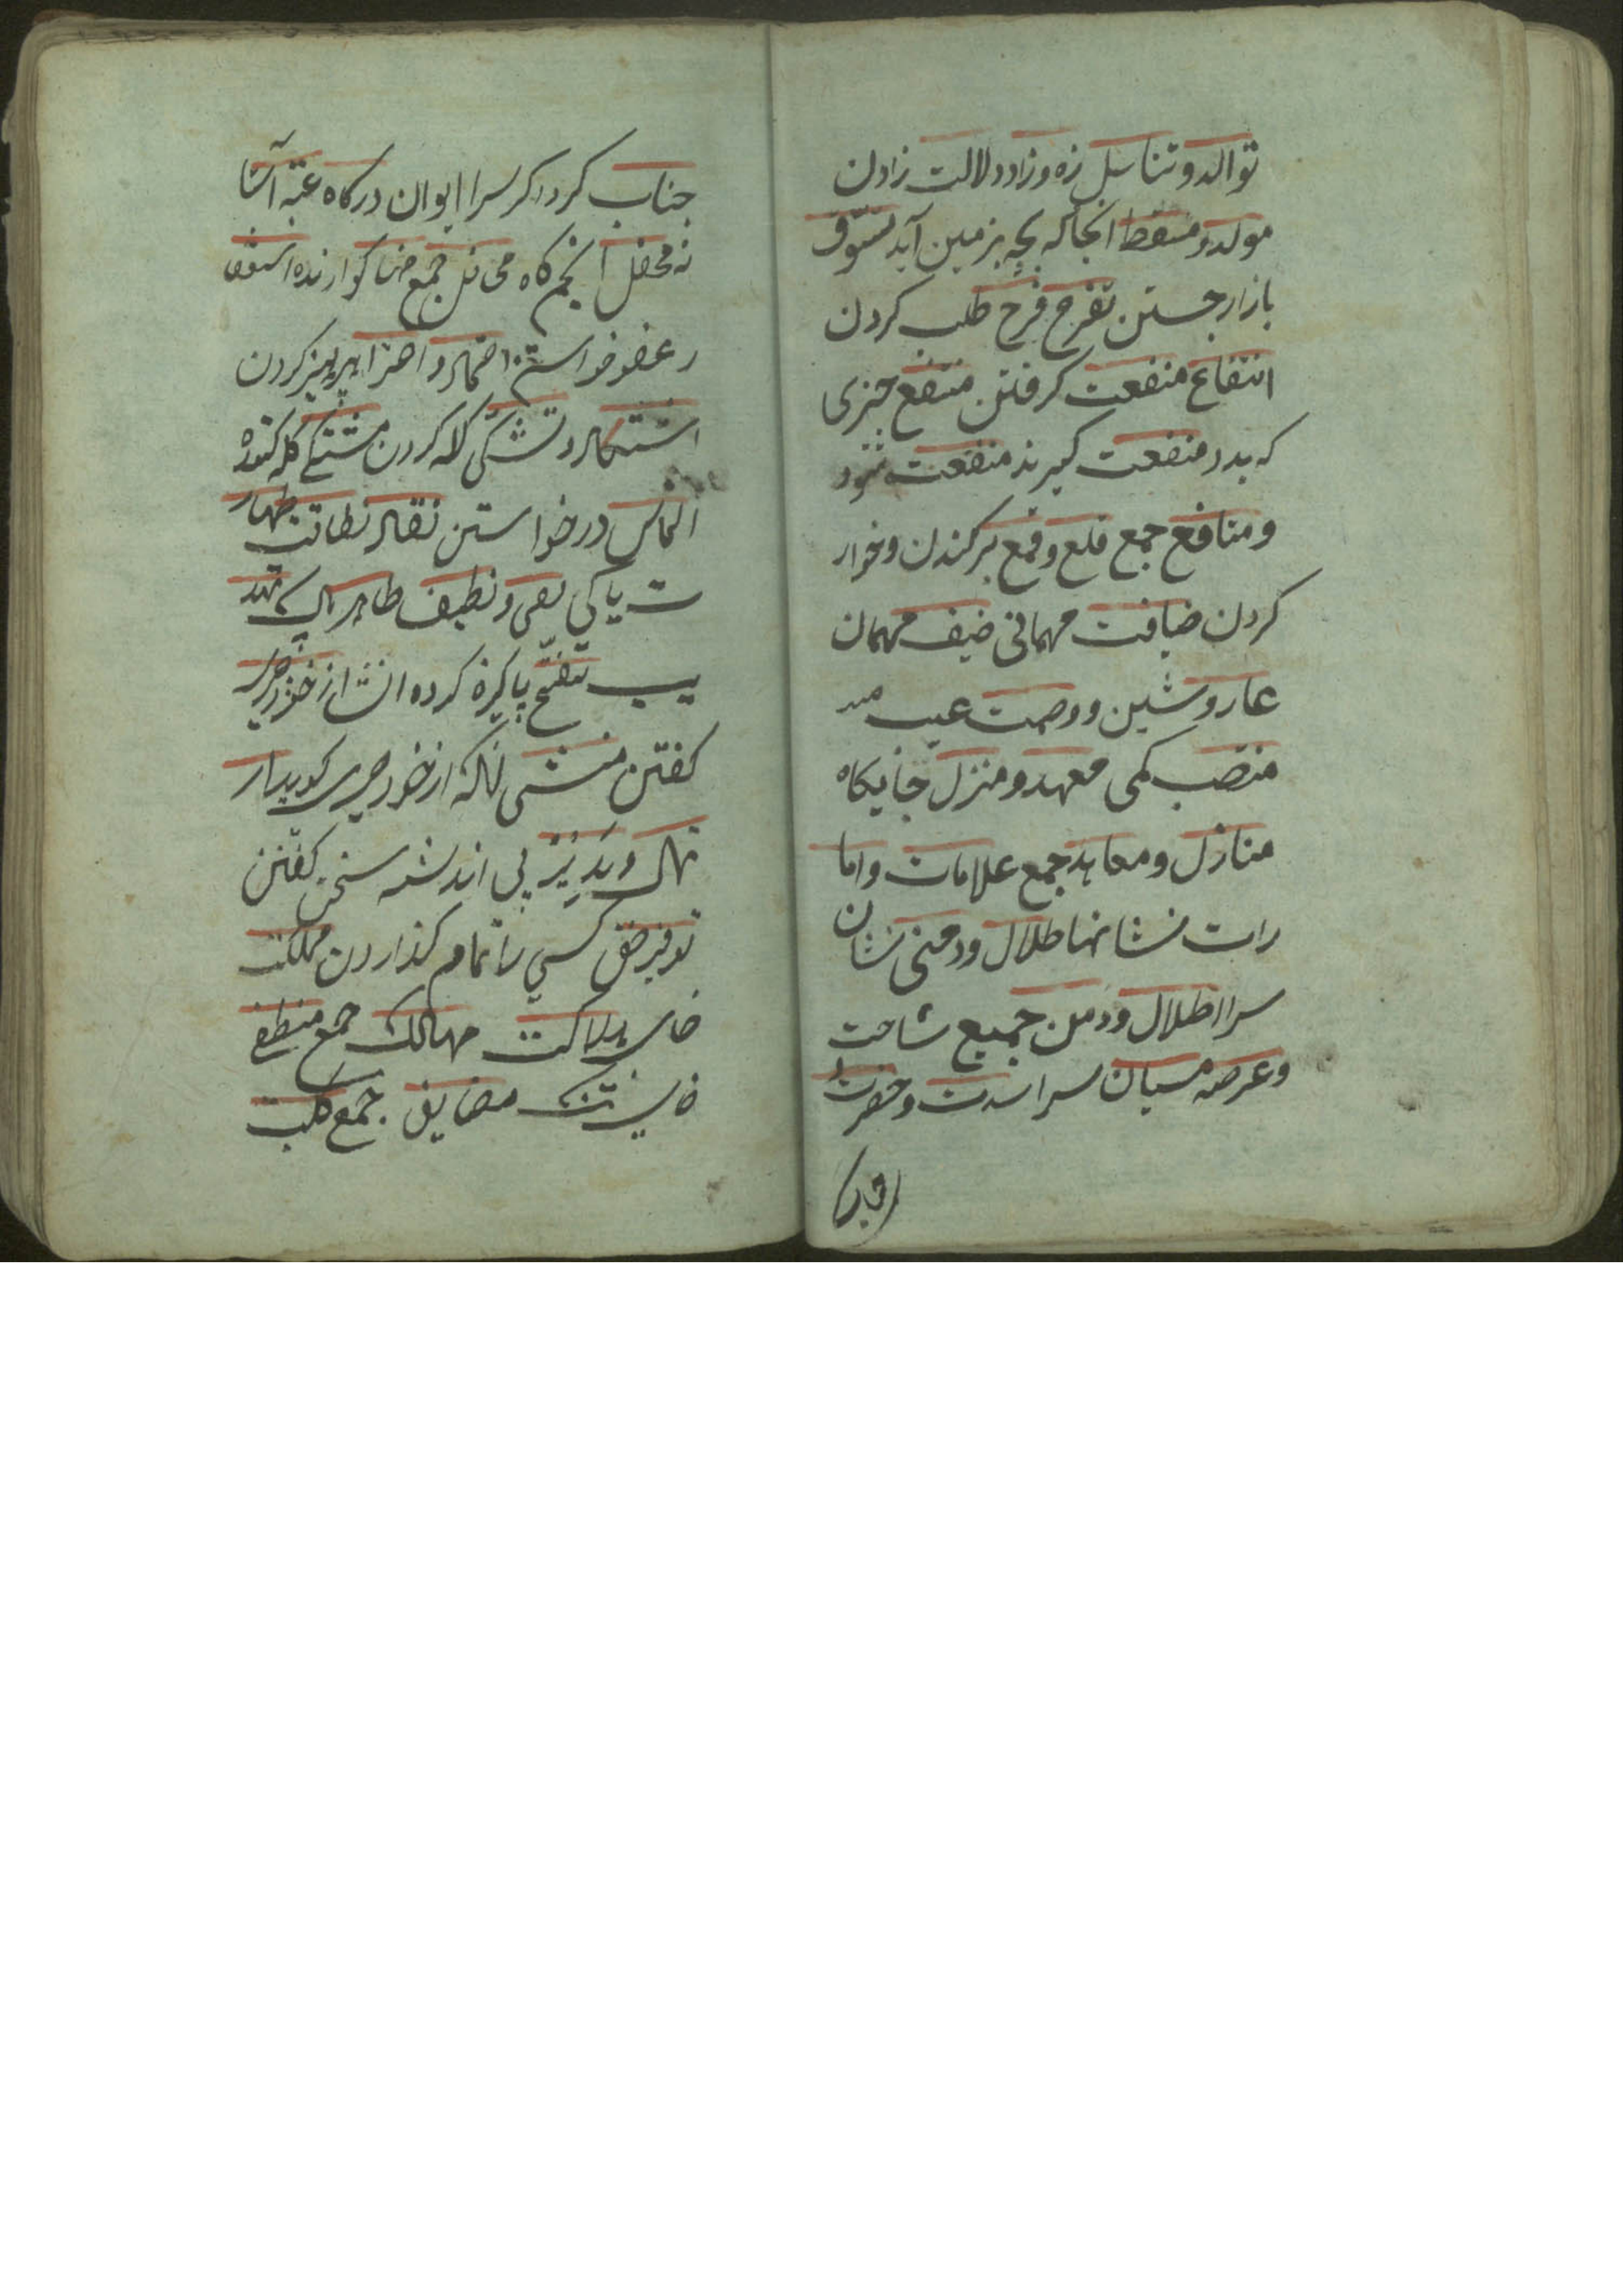 توالد و تناسل زه و زاد دلالت زادن
مولد و مسقط انجا که بچه بزمین آید تسوق
بازار جستن تفرج فرح طلب کردن
انتفاع منفعت کرفتن منتفع چیزی
که بدو منفعت کیرند منفعت شود
و منافع جمع قلع و قمع برکندن و خوار
کردن ضیافت مهمانی ضیف مهمان
عار و شین و وصمت عیب
منصب کمی معهد و منزل جایکاه
منازل و معاهد جمع علامات و اما
رات نشانها طلال و دمنی نشان
سرا اطلال و دمن جمیع ساحت
و عرصه میان سرا سدت و حضرت
جناب
جناب کرداکر سرا ایوان درکاه عتبه آستا
نه محفل انجم کاه محافل جمع کوارنده استعفا
ر عفو خواستن احتما و احترا پرهیز کردن
اشتکا و تشکی کله کردن مشتکی کله کننده
التماس درخواستن نقا نظافت طهار
ت پاکی نقی و نظیف طاهر پاک تهذ
یب تنقیح پاکیزه کرده انشا از خود چیز
کفتن منشی انکه از خود چیزی کوید ار
تجال و بی اندیشه سخن کفتن
توفیر حق کسی را تمام کذاردن مهلکت
جای هلاکت مهالک جمع
جای تنک مضایق جمع